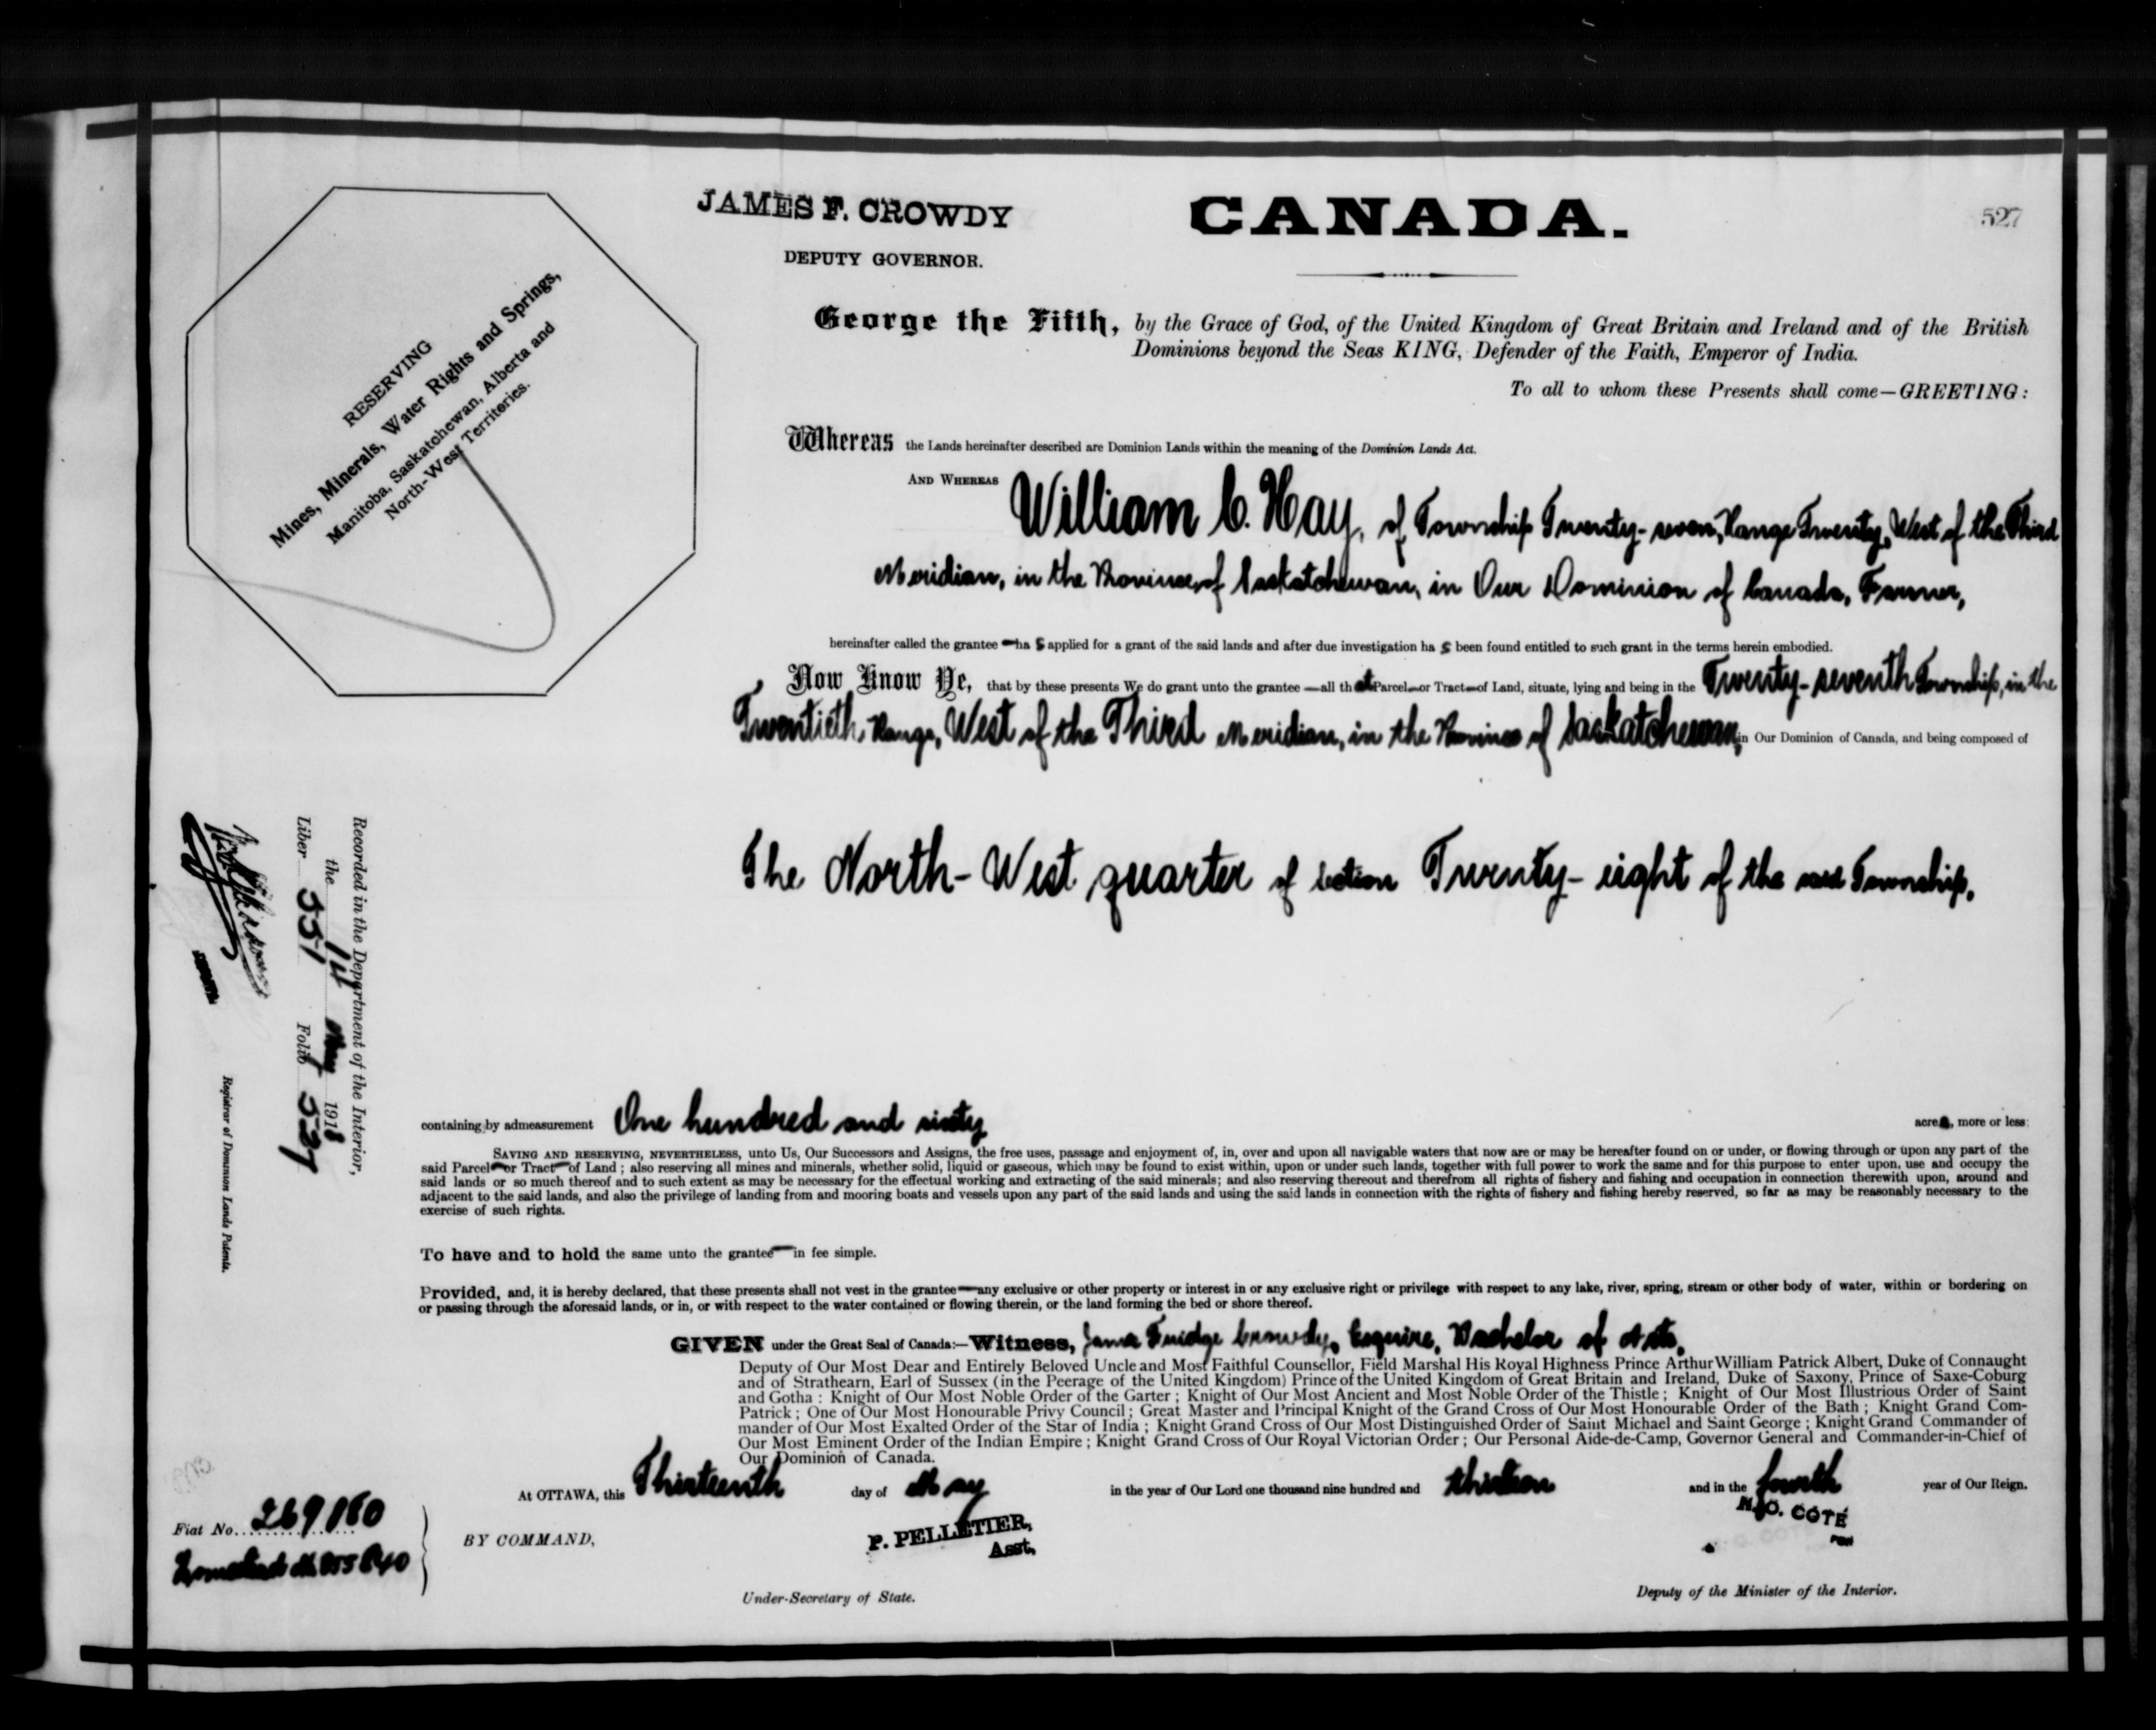 JAMES F. CROWDY
DEPUTY GOVERNOR.
CANADA.
527
RESERVING
Mines, Minerals, Water Rights and Springs,
Manitoba, Saskatchewan, Alberta and
North-West Territories.
George the Fifth, by the Grace of God, of the United Kingdom of Great Britain and Ireland and of the British
Dominions beyond the Seas KING, Defender of the Faith, Emperor of India.
To all to whom these Presents shall come—GREETING:
Whereas the Lands hereinafter described are Dominion Lands within the meaning of the Dominion Lands Act.
AND WHEREAS William C. Hay, of Township Twenty-seven, Range Twenty, West of the Third
Meridian, in the Province of Saskatchewan, in Our Dominion of Canada, Farmer,
hereinafter called the grantee—has applied for a grant of the said lands and after due investigation has been found entitled to such grant in the terms herein embodied.
Now Know Ye, that by these presents We do grant unto the grantee—all that Parcel—or Tract—of Land, situate, lying and being in the Twenty-seventh Township, in the
Twentieth Range, West of the Third Meridian, in the Province of Saskatchewan, in Our Dominion of Canada, and being composed of
The North-West quarter of Section Twenty-eight of the said Township,
containing by admeasurement One hundred and sixty acres, more or less:
SAVING AND RESERVING, NEVERTHELESS, unto Us, Our Successors and Assigns, the free uses, passage and enjoyment of, in, over and upon all navigable waters that now are or may be hereafter found on or under, or flowing through or upon any part of the
said Parcel—or Tract—of Land; also reserving all mines and minerals, whether solid, liquid or gaseous, which may be found to exist within, upon or under such lands, together with full power to work the same and for this purpose to enter upon, use and occupy the
said lands or so much thereof and to such extent as may be necessary for the effectual working and extracting of the said minerals; and also reserving thereout and therefrom all rights of fishery and fishing and occupation in connection therewith upon, around and
adjacent to the said lands, and also the privilege of landing from and mooring boats and vessels upon any part of the said lands and using the said lands in connection with the rights of fishery and fishing hereby reserved, so far as may be reasonably necessary to the
exercise of such rights.
To have and to hold the same unto the grantee—in fee simple.
Provided, and, it is hereby declared, that these presents shall not vest in the grantee—any exclusive or other property or interest in or any exclusive right or privilege with respect to any lake, river, spring, stream or other body of water, within or bordering on
or passing through the aforesaid lands, or in, or with respect to the water contained or flowing therein, or the land forming the bed or shore thereof.
GIVEN under the Great Seal of Canada:—Witness, James Fuidge Crowdy, Esquire, Bachelor of Arts,
Deputy of Our Most Dear and Entirely Beloved Uncle and Most Faithful Counsellor, Field Marshal His Royal Highness Prince Arthur William Patrick Albert, Duke of Connaught
and of Strathearn, Earl of Sussex (in the Peerage of the United Kingdom) Prince of the United Kingdom of Great Britain and Ireland, Duke of Saxony, Prince of Saxe-Coburg
and Gotha: Knight of Our Most Noble Order of the Garter; Knight of Our Most Ancient and Most Noble Order of the Thistle; Knight of Our Most Illustrious Order of Saint
Patrick; One of Our Most Honourable Privy Council; Great Master and Principal Knight of the Grand Cross of Our Most Honourable Order of the Bath; Knight Grand Com-
mander of Our Most Exalted Order of the Star of India; Knight Grand Cross of Our Most Distinguished Order of Saint Michael and Saint George; Knight Grand Commander of
Our Most Eminent Order of the Indian Empire; Knight Grand Cross of Our Royal Victorian Order; Our Personal Aide-de-Camp, Governor General and Commander-in-Chief of
Our Dominion of Canada.
At OTTAWA, this Thirteenth day of May in the year of Our Lord one thousand nine hundred and thirteen and in the fourth year of Our Reign.
BY COMMAND,
P. PELLETIER,
Asst.
Under-Secretary of State.
N. O. COTÉ
Deputy of the Minister of the Interior.
Recorded in the Department of the Interior,
the 14 May 1913
Liber 551 Folio 527
Registrar of Dominion Lands Patents.
Fiat No. 269160
Homestead